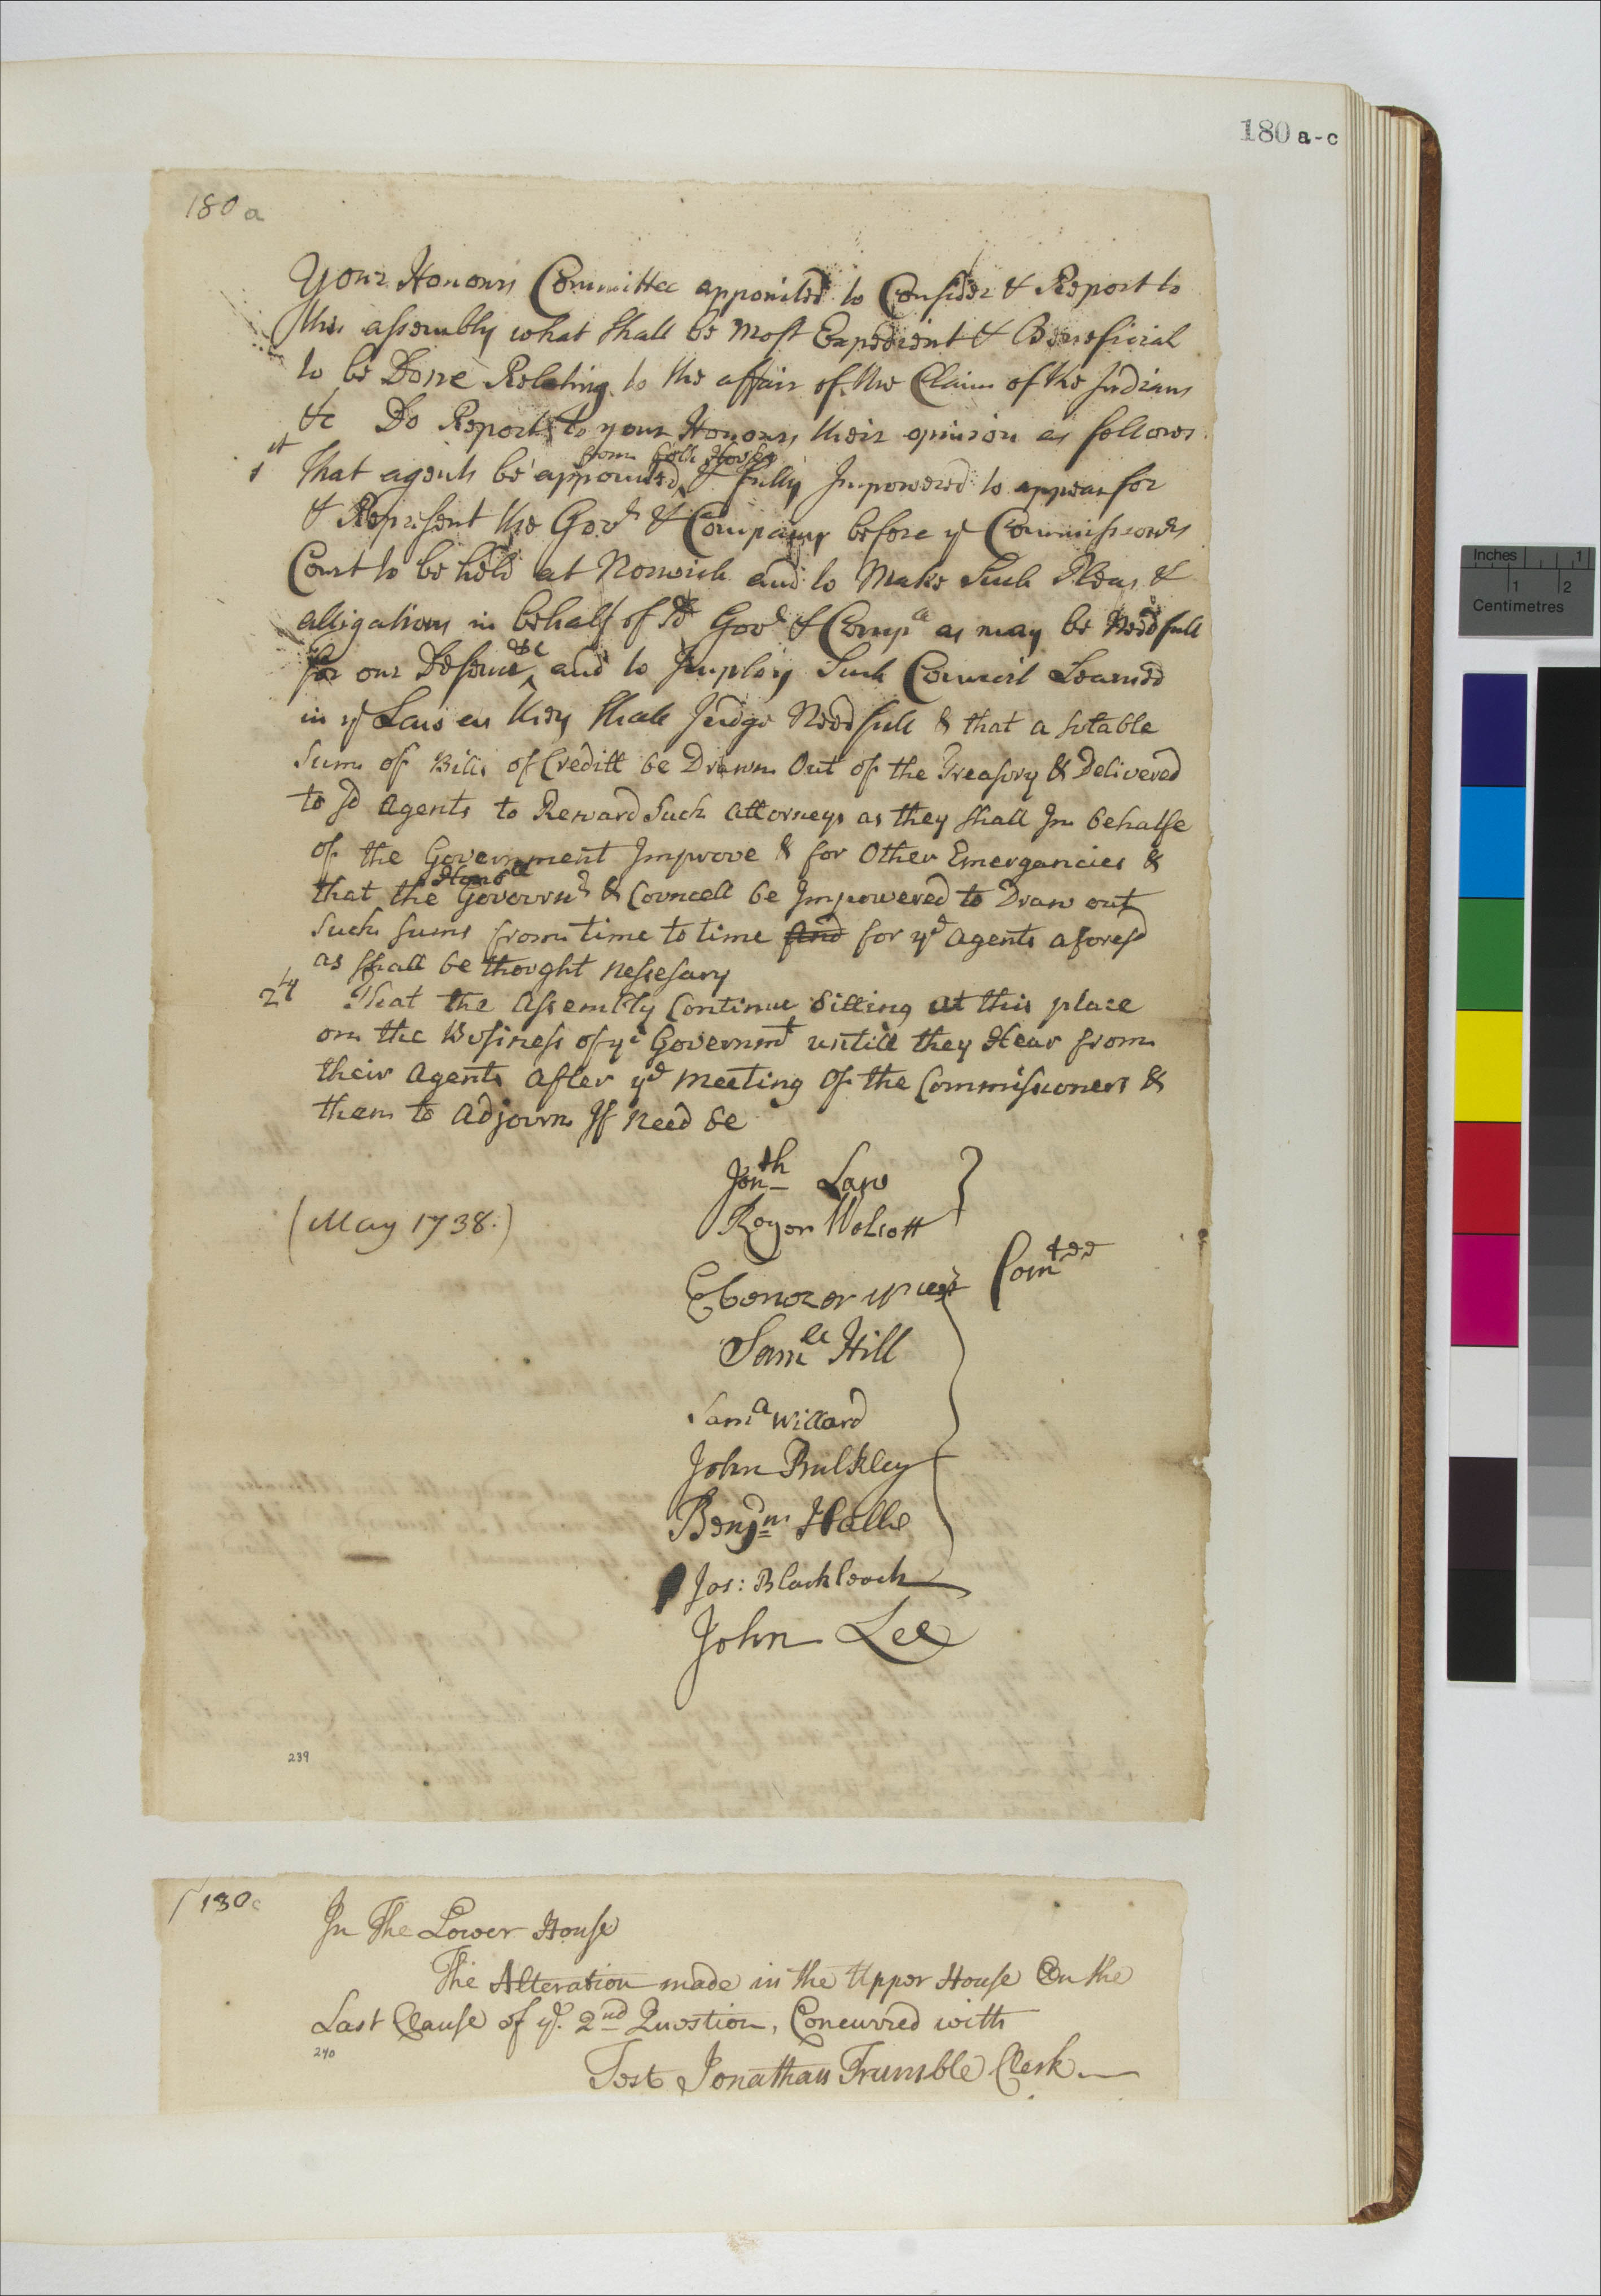 180 a-c
180 a
Your Honours Committee appointed to Consider & Report to
this assembly what shall be most Expedient & Beneficial
to be Done Relating to the affair of the Claim of the Indians
&c Do Report to your Honours their opinion as follows
1st that agents be appointed from both Houses & fully Impowered to appear for
& Represent the Govr & Company before ye Commissioners
Court to be held at Norwich and to Make Such Pleas &
alligations in behalf of sd Govr & Compa as may be Needfull
for our Defence &c and to Imploy Such Council Learned
in ye Law as they shall Judge Needfull & that a sutable
Sum of Bills of Creditt be Drawn Out of the Treasory & Delivered
to sd Agents to Reward Such Attorneys as they shall In behalfe
of the Government Improve & for Other Emergancies &
that the Honobll Governr & Councell be Impowered to Draw out
Such sums from time to time and for ye Agents aforesd
as shall be thought nessesary
2ly That the Assembly Continue Sitting at this place
on the Busines of ye Governmt untill they Hear from
their Agents after ye meeting Of the Commissioners &
then to Adjourn If need be
(May 1738.)
Jonth Law
Roger Wolcott
Ebenezer West
Comtee
Samll Hill
Samll Willard
John Bulkley
Benjm Halle
Jos: Blackleach
John Lee
239
180c
In The Lower House
The Alteration made in the Upper House On the
Last Clause of ye 2nd Question, Concurred with
240
Test Jonathan Trumble Clerk
Inches 1
1 2
Centimetres